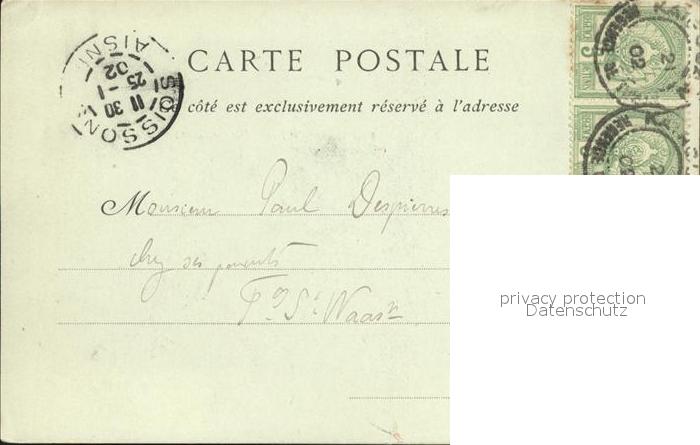 CARTE POSTALE
côté est exclusivement réservé à l'adresse
SOISSONS
AISNE
11 30
25 - 1
02
Monsieur Paul Despierres
chez ses parents
Fg St Waast
privacy protection
Datenschutz